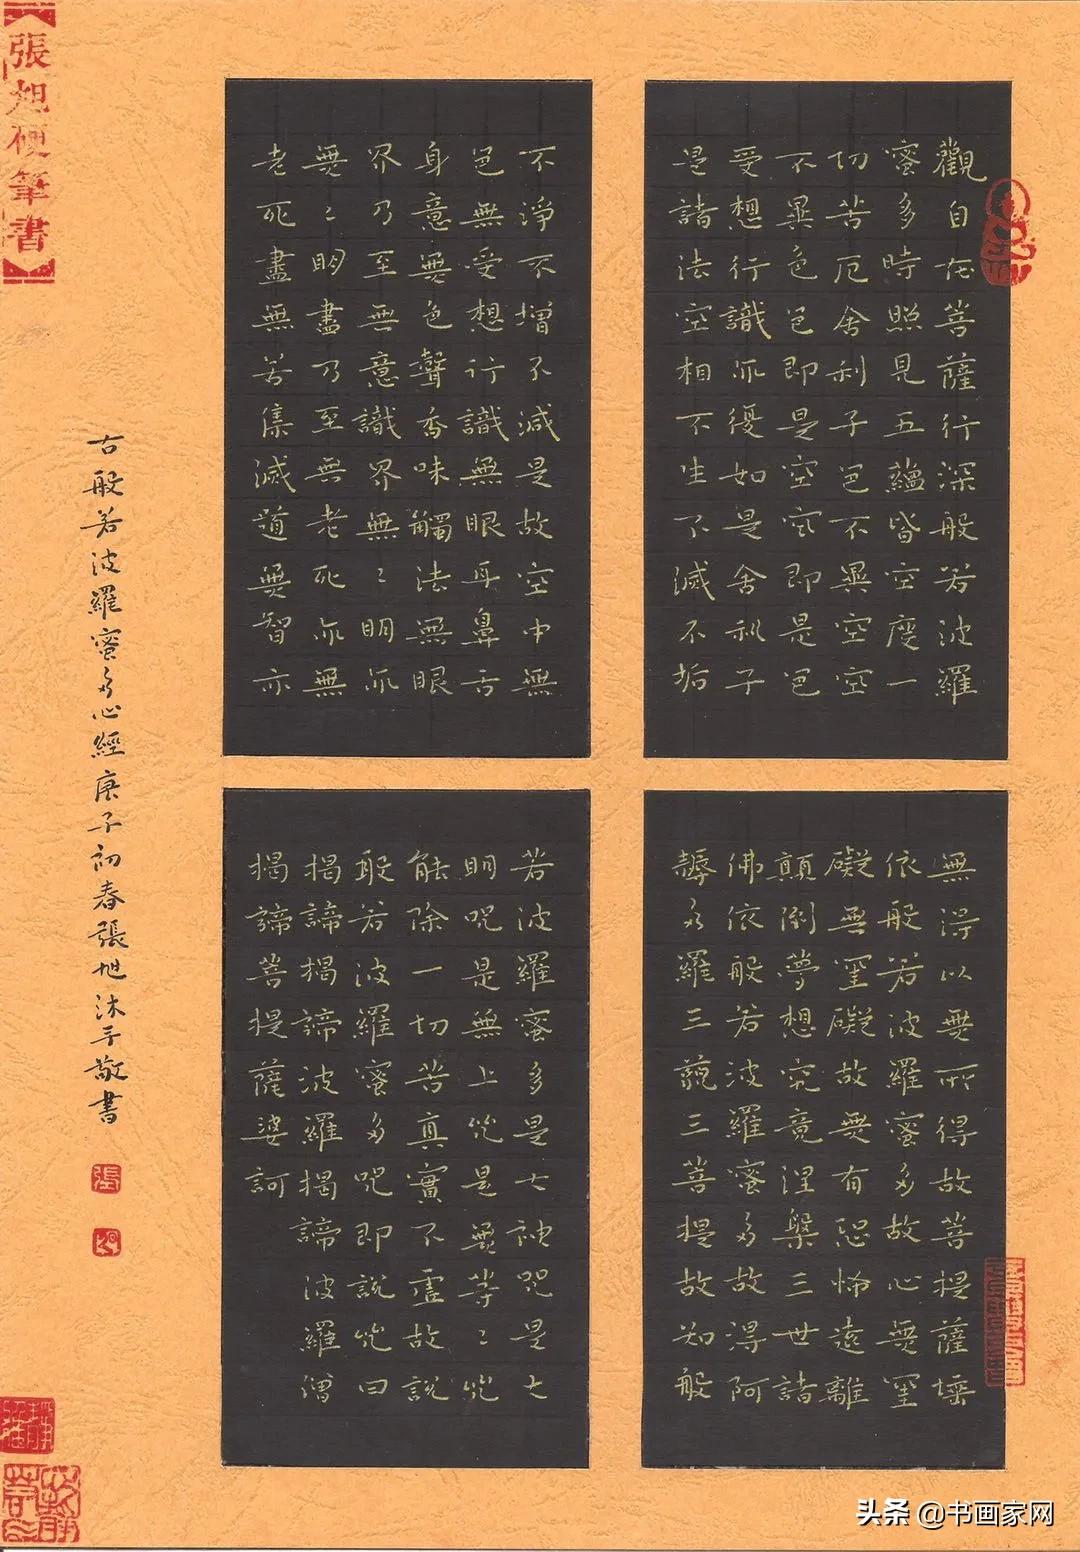 觀自在菩薩行深般若波羅
蜜多時照見五蘊皆空度一
切苦厄舍利子色不異空空
不異色色即是空空即是色
受想行識亦復如是舍利子
是諸法空相不生不滅不垢
不淨不增不減是故空中無
色無受想行識無眼耳鼻舌
身意無色聲香味觸法無眼
界乃至無意識界無〻明亦
無〻明盡乃至無老死亦無
老死盡無苦集滅道無智亦
無得以無所得故菩提薩埵
依般若波羅蜜多故心無罣
礙無罣礙故無有恐怖遠離
顛倒夢想究竟涅槃三世諸
佛依般若波羅蜜多故得阿
耨多羅三藐三菩提故知般
若波羅蜜多是大神咒是大
明咒是無上咒是無等〻咒
能除一切苦真實不虛故說
般若波羅蜜多咒即說咒曰
揭諦揭諦波羅揭諦波羅僧
揭諦菩提薩婆訶
古般若波羅蜜多心經庚子初春張旭沐手敬書
張
旭
張旭硬筆書
头条 @书画家网